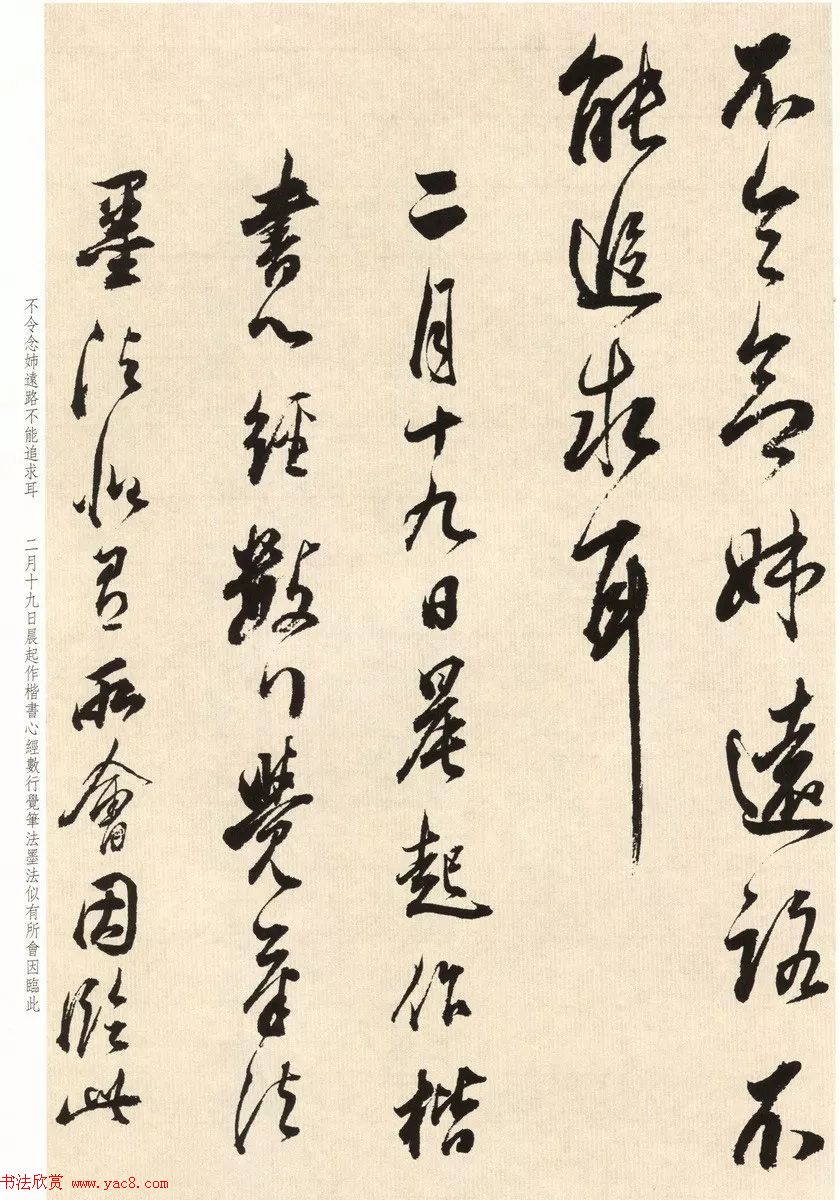 不令念姊遠路不
能追求耳
二月十九日晨起作楷
書心經數行覺筆法
墨法似有所會因臨此
不令念姊遠路不能追求耳 二月十九日晨起作楷書心經數行覺筆法墨法似有所會因臨此
书法欣赏 www.yac8.com